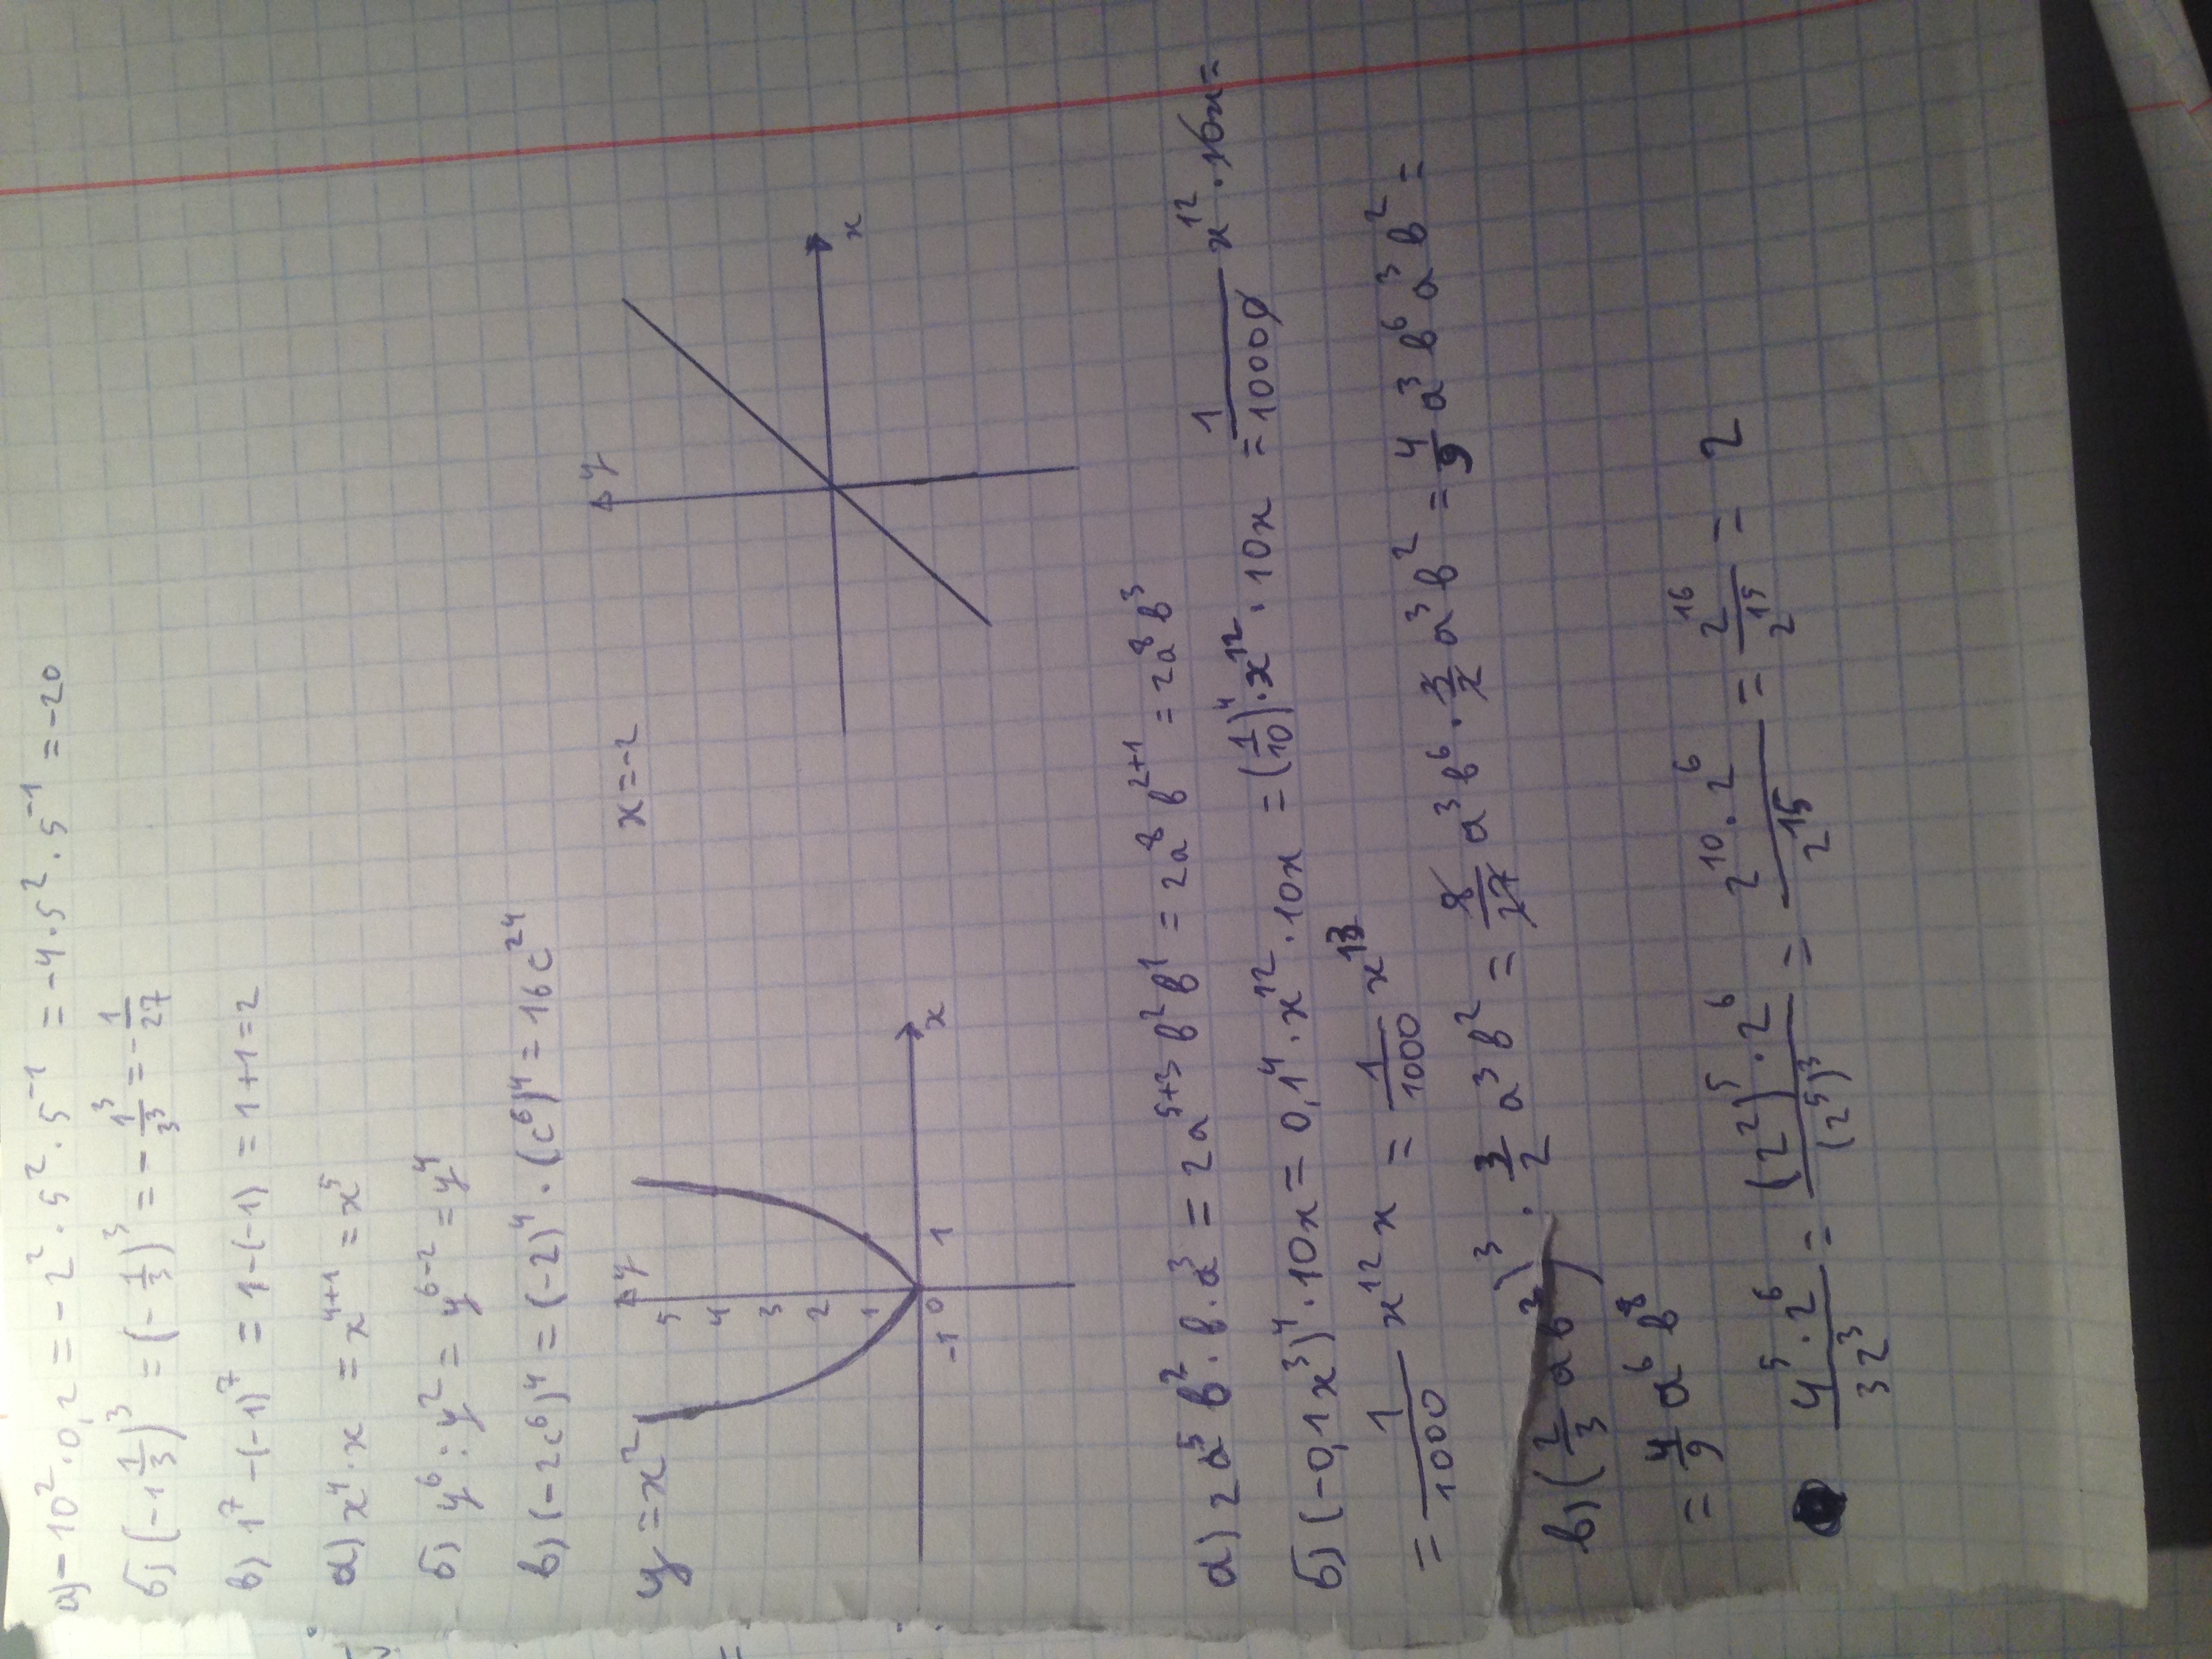 а) -10² · 0,2 = -2² · 5² · 5⁻¹ = -4 · 5² · 5⁻¹ = -20
б) (-1 1/3)³ = (-1/3)³ = -1³/3³ = -1/27
в) 1⁷ - (-1)⁷ = 1 - (-1) = 1 + 1 = 2
а) x⁴ · x = x⁴⁺¹ = x⁵
б) y⁶ : y² = y⁶⁻² = y⁴
в) (-2c⁶)⁴ = (-2)⁴ · (c⁶)⁴ = 16c²⁴
y = x²
y
5
4
3
2
1
-1 0 1
x
x = -2
y
x
а) 2a⁵b² · b · a³ = 2a⁵⁺³b²b¹ = 2a⁸b²⁺¹ = 2a⁸b³
б) (-0,1x³)⁴ · 10x = 0,1⁴ · x¹² · 10x = (1/10)⁴ · x¹² · 10x = 1/10000 x¹² · 10x =
= 1/1000 x¹²x = 1/1000 x¹³
в) (2/3 ab²)³ · 3/2 a³b² = 8/27 a³b⁶ · 3/2 a³b² = 4/9 a³b⁶a³b² =
= 4/9 a⁶b⁸
4⁵ · 2⁶/32³ = (2²)⁵ · 2⁶/(2⁵)³ = 2¹⁰ · 2⁶/2¹⁵ = 2¹⁶/2¹⁵ = 2